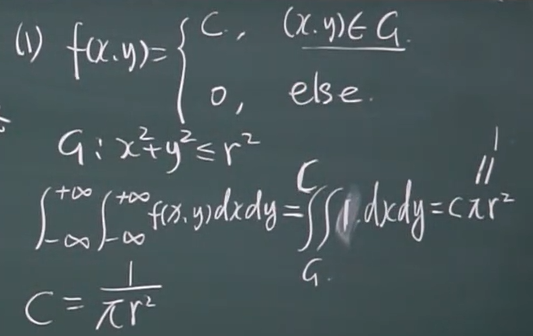 (1) f(x,y)={ C, (x,y)∈G.
0, else.
G: x²+y²≤r²
∫_{-∞}^{+∞} ∫_{-∞}^{+∞} f(x,y)dxdy = C∬_G 1 dxdy = cπr² = 1
C = 1/(πr²)